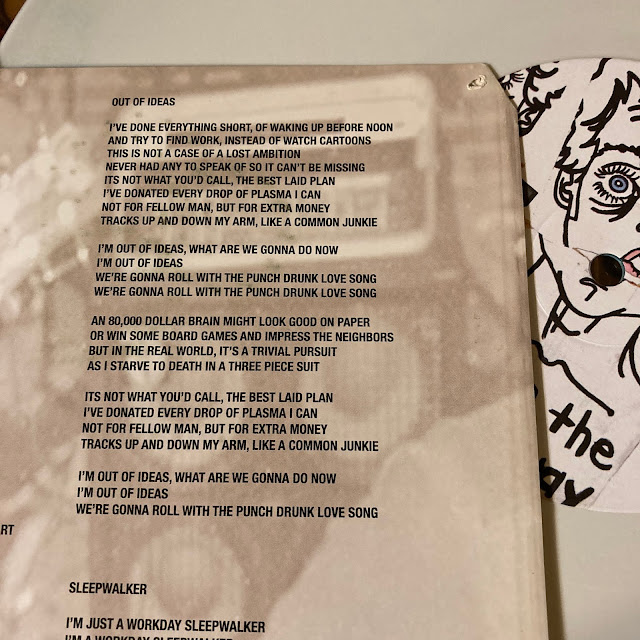 OUT OF IDEAS
I'VE DONE EVERYTHING SHORT, OF WAKING UP BEFORE NOON
AND TRY TO FIND WORK, INSTEAD OF WATCH CARTOONS
THIS IS NOT A CASE OF A LOST AMBITION
NEVER HAD ANY TO SPEAK OF SO IT CAN'T BE MISSING
ITS NOT WHAT YOU'D CALL, THE BEST LAID PLAN
I'VE DONATED EVERY DROP OF PLASMA I CAN
NOT FOR FELLOW MAN, BUT FOR EXTRA MONEY
TRACKS UP AND DOWN MY ARM, LIKE A COMMON JUNKIE
I'M OUT OF IDEAS, WHAT ARE WE GONNA DO NOW
I'M OUT OF IDEAS
WE'RE GONNA ROLL WITH THE PUNCH DRUNK LOVE SONG
WE'RE GONNA ROLL WITH THE PUNCH DRUNK LOVE SONG
AN 80,000 DOLLAR BRAIN MIGHT LOOK GOOD ON PAPER
OR WIN SOME BOARD GAMES AND IMPRESS THE NEIGHBORS
BUT IN THE REAL WORLD, IT'S A TRIVIAL PURSUIT
AS I STARVE TO DEATH IN A THREE PIECE SUIT
ITS NOT WHAT YOU'D CALL, THE BEST LAID PLAN
I'VE DONATED EVERY DROP OF PLASMA I CAN
NOT FOR FELLOW MAN, BUT FOR EXTRA MONEY
TRACKS UP AND DOWN MY ARM, LIKE A COMMON JUNKIE
I'M OUT OF IDEAS, WHAT ARE WE GONNA DO NOW
I'M OUT OF IDEAS
WE'RE GONNA ROLL WITH THE PUNCH DRUNK LOVE SONG
RT
SLEEPWALKER
I'M JUST A WORKDAY SLEEPWALKER
I'M A WORKDAY SLEEPWALKER
the